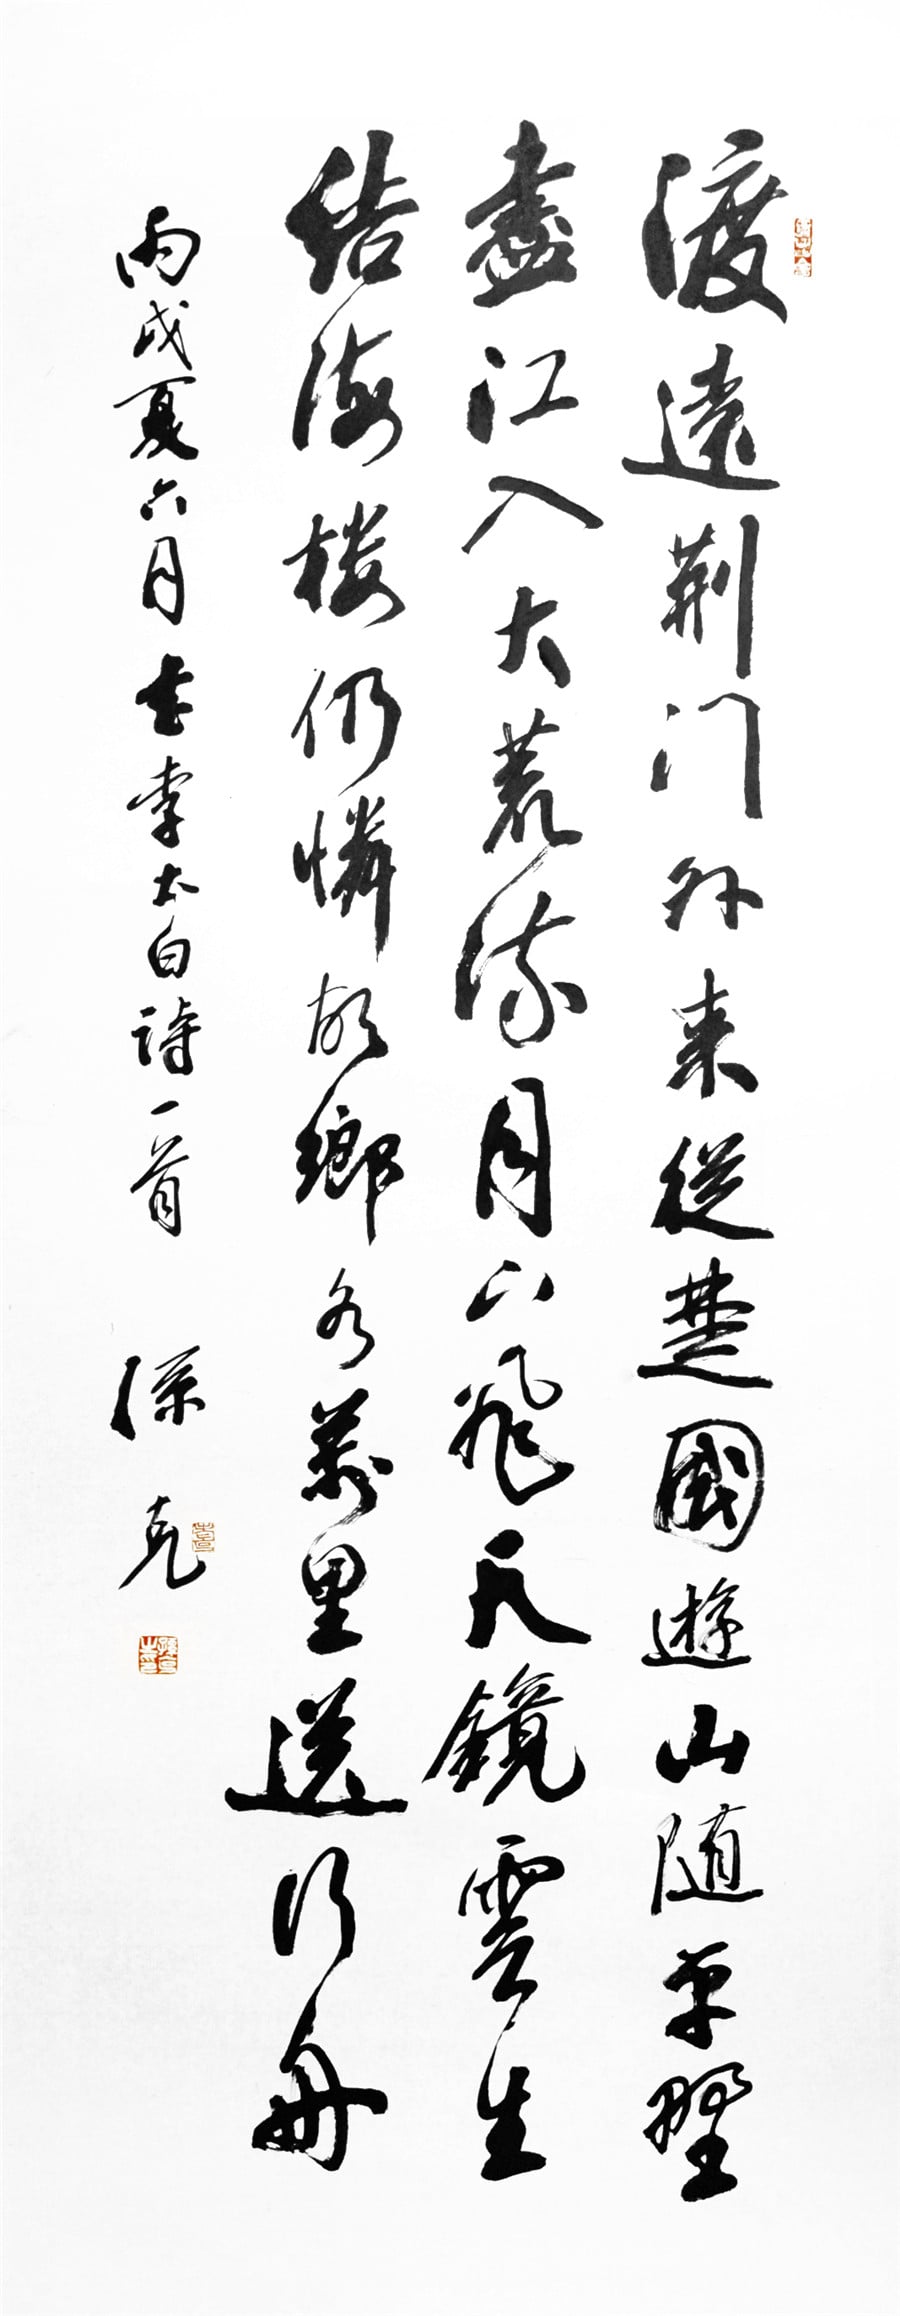 渡遠荆门外来從楚國遊山随平野
盡江入大荒流月下飛天鏡雲生
结海楼仍憐故鄉水萬里送行舟
丙戌夏六月書李太白詩一首